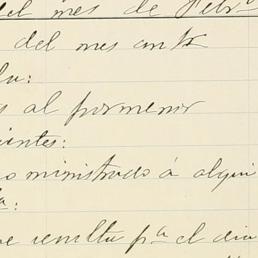 del mes de Febro
del mes ante
la:
s al pormenor
ientes:
o ministrado á alqui
a:
e resulta pa el dia